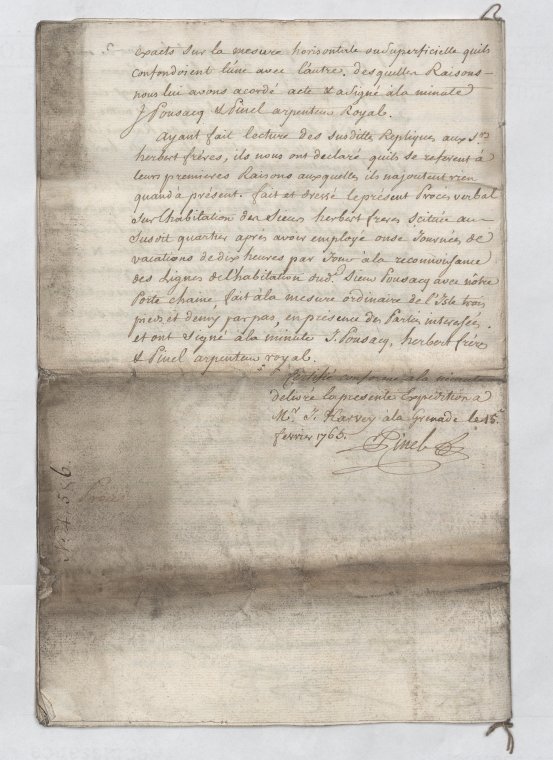 exacts sur la mesure horisontale ou Superficielle quils
confondoient l'une avec l'autre. desquelles Raisons
nous lui avons acordé acte & a Signé à la minute
J Pousacq & Pinel arpenteur Royal.
Ayant fait lecture des susdittes Repliques aux Srs
herbert fréres, ils nous ont declaré quils se referent à
leurs premieres Raisons auxquelles ils n'ajoutent rien
quand à présent. fait et dressé le présent Procès verbal
Sur l'habitation des Sieurs herbert freres scituée au
Susdit quartier aprés avoir employé onse Journées de
vacations de dix heures par Jour à la reconnoissance
des Lignes de l'habitation dud. Sieur Pousacq avec nôtre
Porte chaine, fait à la mesure ordinaire de l'Isle trois
pieds et demy par pas, en présence des Parties interesées
et ont Signé à la minute J. Pousacq, herbert fréres
& Pinel arpenteur royal.
Certifié conforme a la minute
delivré la presente Expedition a
Mr. J. Harvey à la Grenade le 15
fevrier 1763.
Pinel
Procès